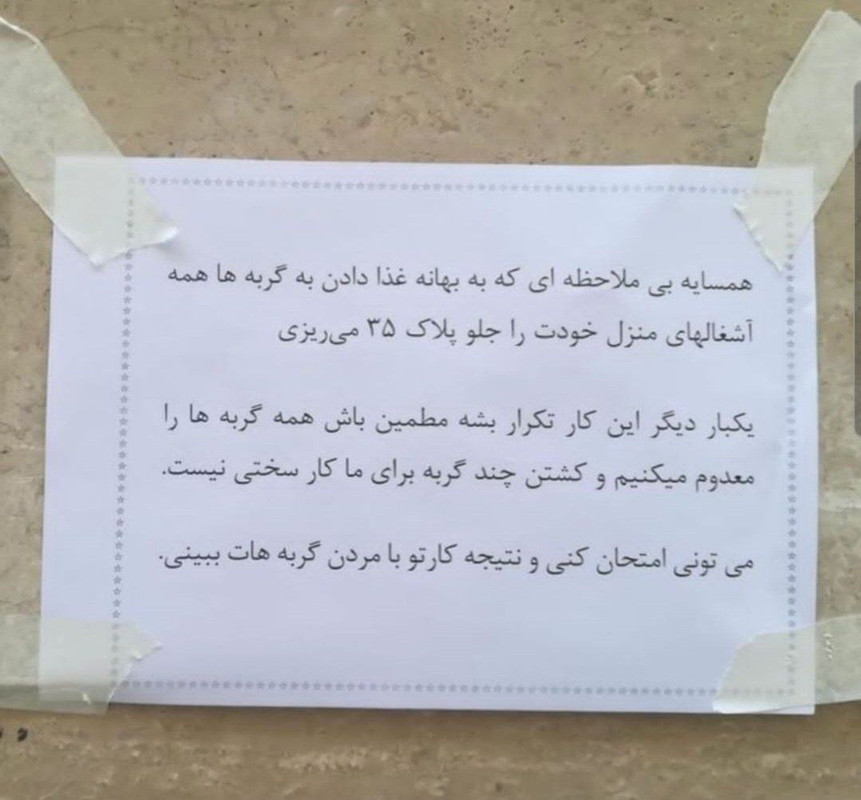 همسایه بی ملاحظه ای که به بهانه غذا دادن به گربه ها همه
آشغالهای منزل خودت را جلو پلاک ۳۵ می‌ریزی
یکبار دیگر این کار تکرار بشه مطمین باش همه گربه ها را
معدوم میکنیم و کشتن چند گربه برای ما کار سختی نیست.
می تونی امتحان کنی و نتیجه کارتو با مردن گربه هات ببینی.